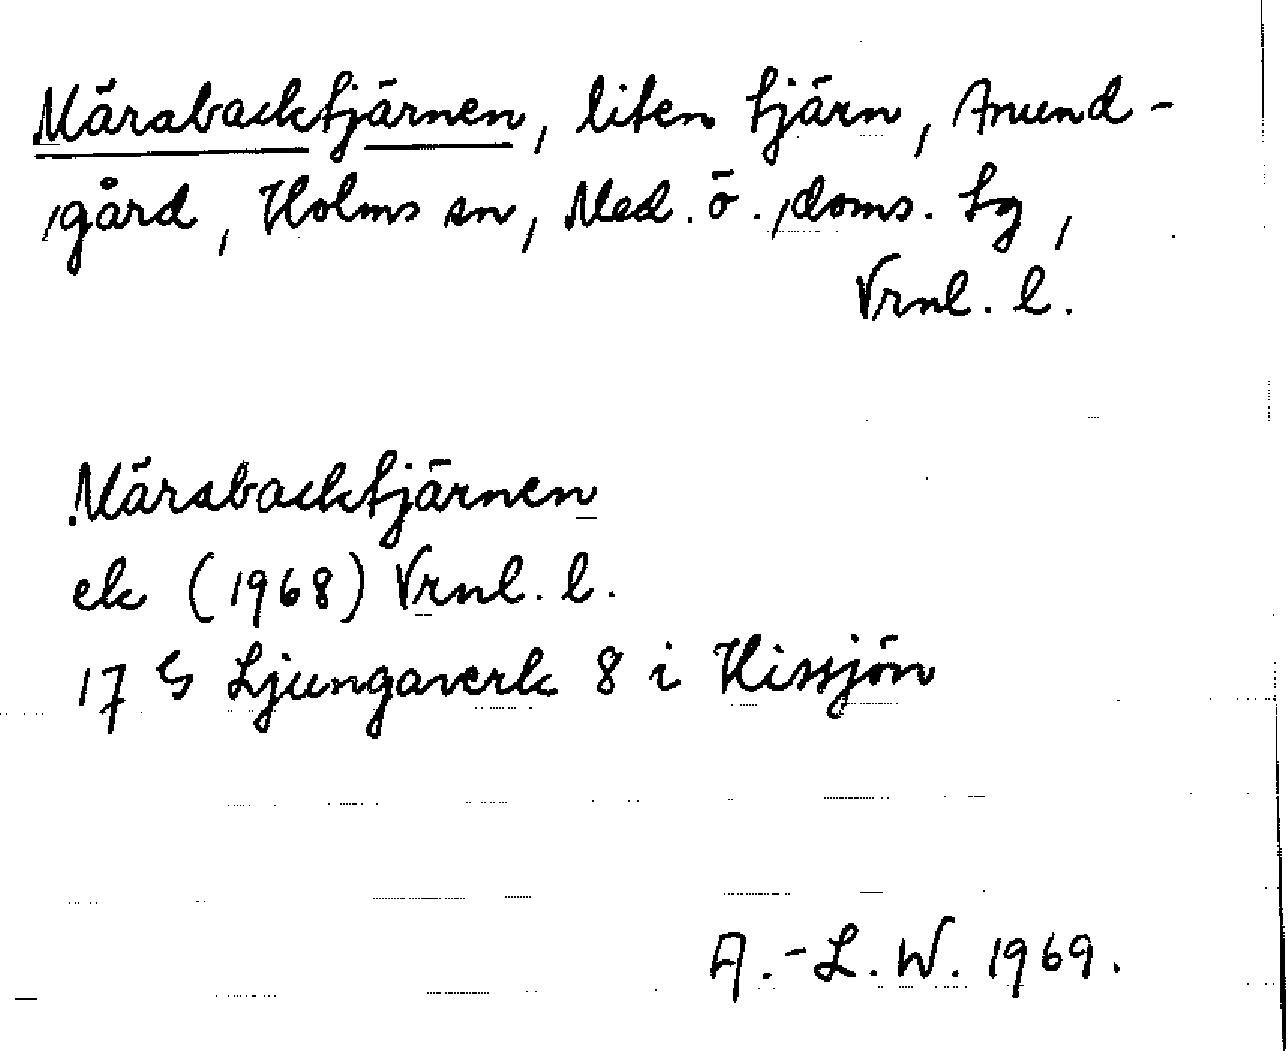 Märabacktjärnen, liten tjärn, Anund-
gård, Holms sn, Med. ö. doms. tg,
Vrnl. l.
Märabacktjärnen
ek (1968) Vrnl. l.
17 G Ljungaverk 8 i Hissjön
A.-L. W. 1969.